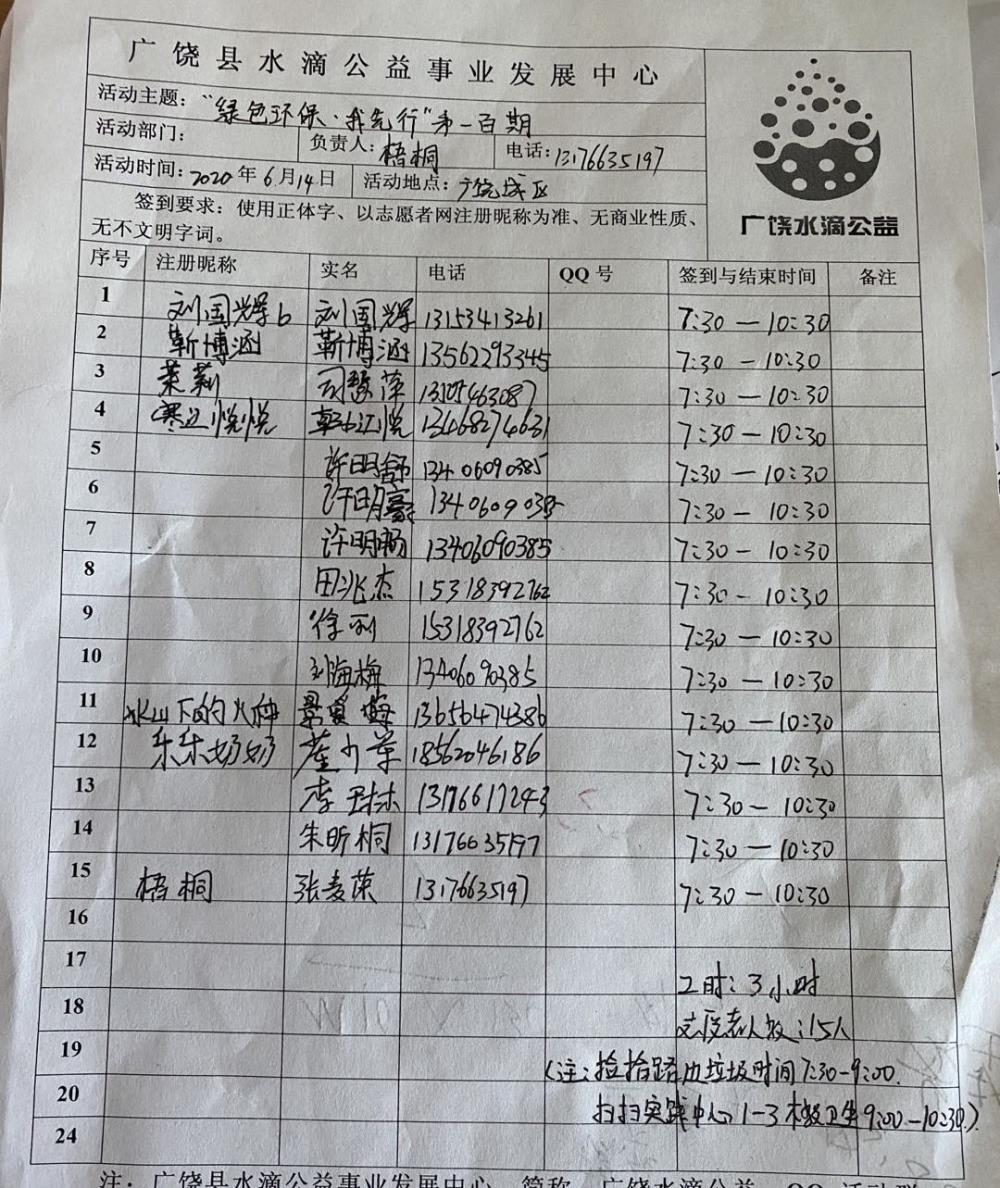 广饶县水滴公益事业发展中心
活动主题：“绿色环保·我先行”第一百期
活动部门： 负责人：梧桐 电话：13176635197
活动时间：2020年6月14日 活动地点：广饶城区
签到要求：使用正体字、以志愿者网注册昵称为准、无商业性质、
无不文明字词。
广饶水滴公益
序号 注册昵称 实名 电话 QQ号 签到与结束时间 备注
1 刘国辉b 刘国辉 13153413261 7:30—10:30
2 靳博涵 靳博涵 13562293345 7:30—10:30
3 茉莉 7:30—10:30
4 13468274631 7:30—10:30
5 许明舒 13406090385 7:30—10:30
6 许明豪 1340609038 7:30—10:30
7 许明畅 13406090385 7:30—10:30
8 田兆杰 15318392762 7:30—10:30
9 徐利 15318392762 7:30—10:30
10 刘海梅 13406090385 7:30—10:30
11 冰山下的火种 13656474386 7:30—10:30
12 乐乐奶奶 18562046186 7:30—10:30
13 李 13176617243 7:30—10:30
14 朱昕桐 13176635197 7:30—10:30
15 梧桐 张麦荣 13176635197 7:30—10:30
16
17 工时：3小时
18 志愿者人数：15人
19 （注：捡拾路边垃圾时间7:30-9:00.
20 扫扫实践中心1-3楼卫生9:00-10:30.）
24
注：广饶县水滴公益事业发展中心 简称 广饶水滴公益 QQ 活动群